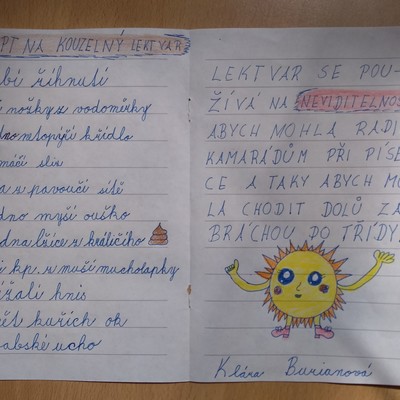 PT NA KOUZELNÝ LEKTVAR
bí říhnutí
nožky z vodoměrky
dno mtopýří křídlo
máčí sliz
a z pavoučí sítě
dno myší ouško
dna lžíce z králičího
kp. z muší mucholapky
žralí hnis
ět kuřích ok
abské ucho
LEKTVAR SE POU-
ŽÍVÁ NA NEVIDITELNOS
ABYCH MOHLA RADI
KAMARÁDŮM PŘI PÍSE
CE A TAKY ABYCH MO
LA CHODIT DOLŮ ZA
BRÁCHOU DO TŘÍDY
Klára Burianová